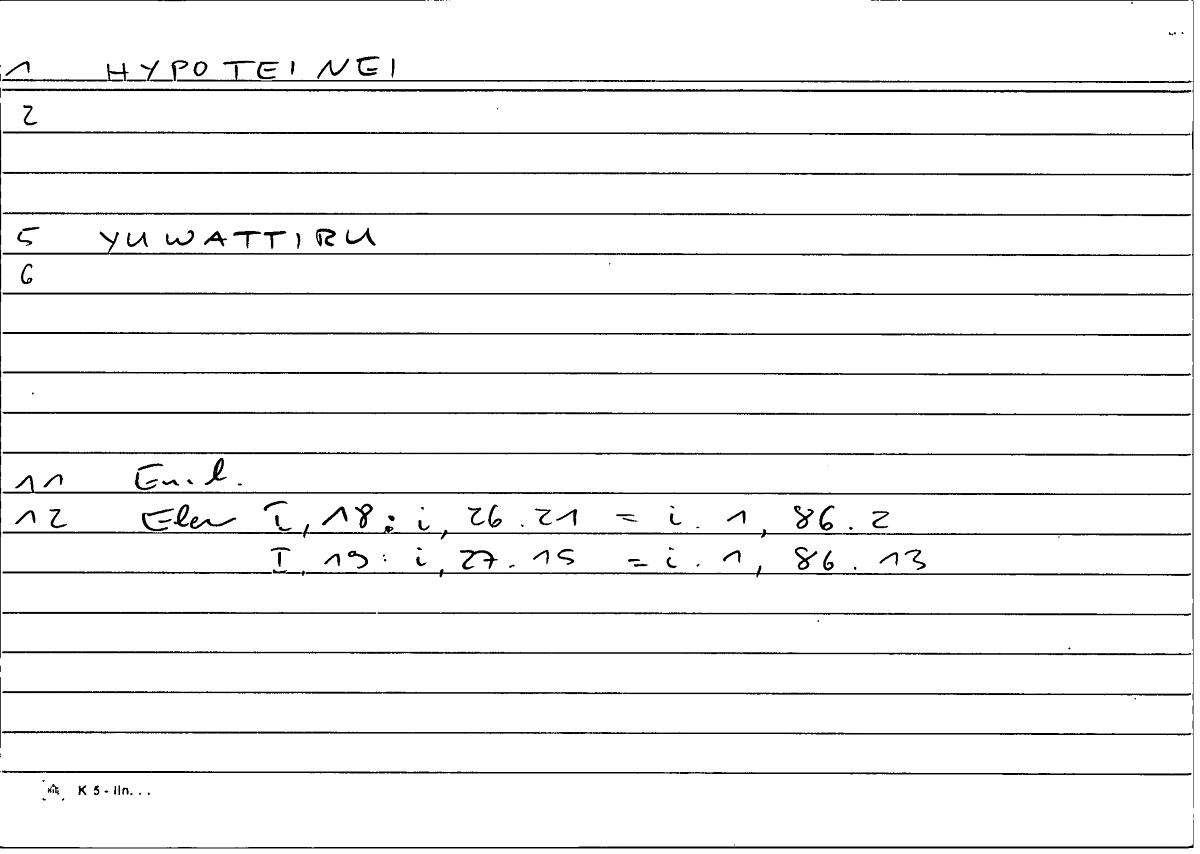 1 HYPOTEINEI
2
5 YUWATTIRU
6
11 Eu.l.
12 Elem I, 18: i, 26.21 = i.1, 86.2
I, 19: i, 27.15 = i.1, 86.13
K 5 - lin...